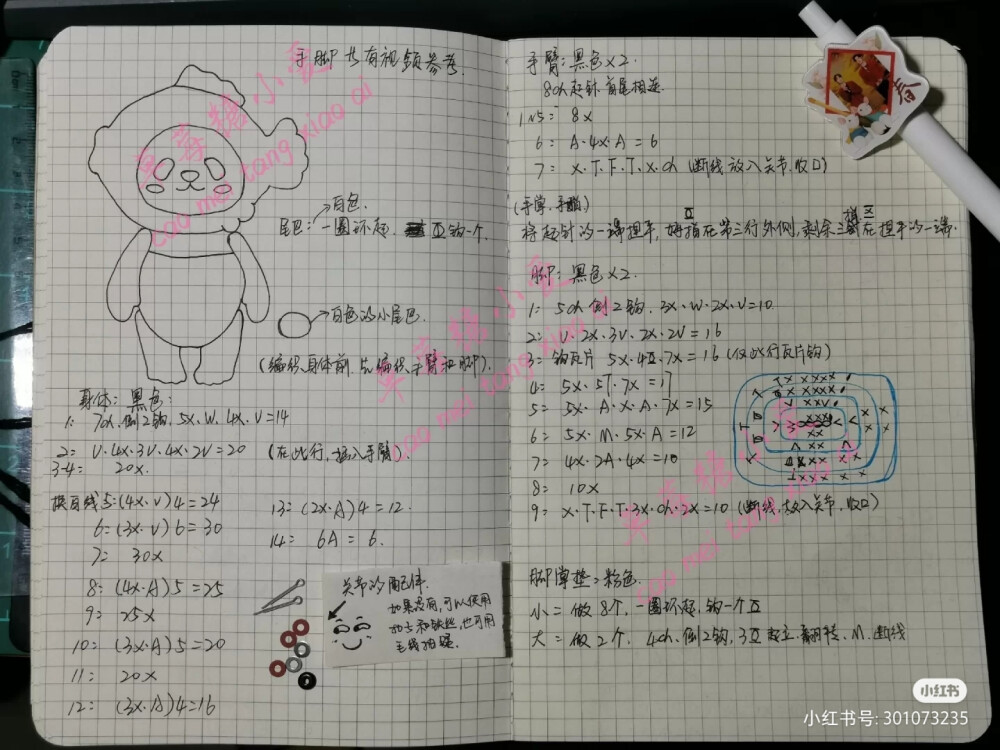 手脚步有视频参考.
白色.
尾巴: 一圈环起. 亚钩一个.
白色的小尾巴.
(编织身体前.先编织手臂和脚).
身体: 黑色:
1: 7ch.倒2钩. 5x. W. 4x. V=14
2= V. 4x. 3V. 4x. 2V=20 (在此行,接入手臂).
3-4: 20x.
换百线5:(4x. V)4=24
6:(3x. V)6=30
7: 30x
8: (4x.A)5=25
9: 25x
10: (3x.A)5=20
11: 20x
12: (3x.A)4=16
13=(2x.A)4=12.
14= 6A = 6.
关节的配件.
如果没有,可以使用
和铁丝,也可用
毛线
手臂: 黑色x2.
8ch起针.首尾相连
1~5= 8x
6= A.4x.A=6
7= x.T.F.T.x.ch (断线.放入关节.收口)
(手掌.手)
将起针的一端捏平,拇指在第三行外侧,剩余三在捏平的一端.
脚: 黑色x2.
1: 5ch.倒2钩. 3x.W.2x.V=10
2: V.2x.3V.2x.2V=16
3= 钩瓦片 5x.4亚.7x=16 (仅此行瓦片钩)
4= 5x.5T.7x=17
5= 5x.A.x.A.7x=15
6= 5x.M.5x.A=12
7= 4x.2A.4x=10
8= 10x
9= x.T.F.T.3x.ch.2x=10 (断线.放入关节.收口)
脚掌垫= 粉色.
小= 做8个.一圈环起.钩一个亚
大= 做2个. 4ch.倒2钩.3亚起立.翻转.M.断线
草莓糖小爱
cao mei tang xiao ai
草莓糖小爱
cao mei tang xiao ai
草莓糖小爱
cao mei tang xiao ai
春
小红书
小红书号: 301073235